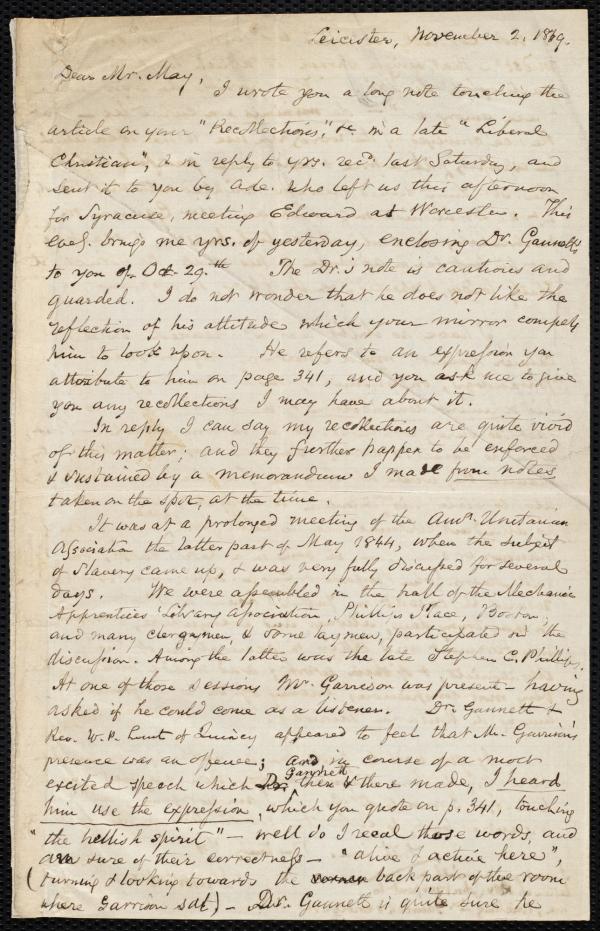 Leicester, November 2. 1869.
Dear Mr. May,
I wrote you a long note touching the
article on your "Recollections", &c. in a late "Liberal
Christian", & in reply to yrs. rec'd. last Saturday, and
sent it to you by Ade. who left us this afternoon
for Syracuse, meeting Edward at Worcester. This
eve'g. brings me yrs. of yesterday, enclosing Dr. Gannett's
to you of Oct. 29.th The Dr.'s note is cautious and
guarded. I do not wonder that he does not like the
reflection of his attitude which your mirror compels
him to look upon. He refers to an expression you
attribute to him on page 341, and you ask me to give
you any recollections I may have about it.
In reply I can say my recollections are quite vivid
of this matter; and they further happen to be enforced
& sustained by a memorandum I made from notes
taken on the spot, at the time.
It was at a prolonged meeting of the Amn. Unitarian
Association the latter part of May 1844, when the subject
of Slavery came up, & was very fully discussed for several
days. We were assembled in the hall of the Mechanic
Apprentices' Library Association, Phillips Place, Boston,
and many clergymen, & some laymen, participated in the
discussion. Among the latter was the late Stephen C. Phillips.
At one of those sessions Mr. Garrison was present – having
asked if he could come as a listener. Dr. Gannett &
Rev. W. P. Lunt of Quincy appeared to feel that Mr. Garrison's
presence was an offence; and in course of a most
Gannett
excited speech which Dr. then & there made, I heard
him use the expression, which you quote on p. 341, touching
"the hellish spirit" – well do I recal those words, and
am sure of their correctness – "alive & active here",
(turning & looking towards the back part of the room
where Garrison sat) – Dr. Gannett is quite sure he